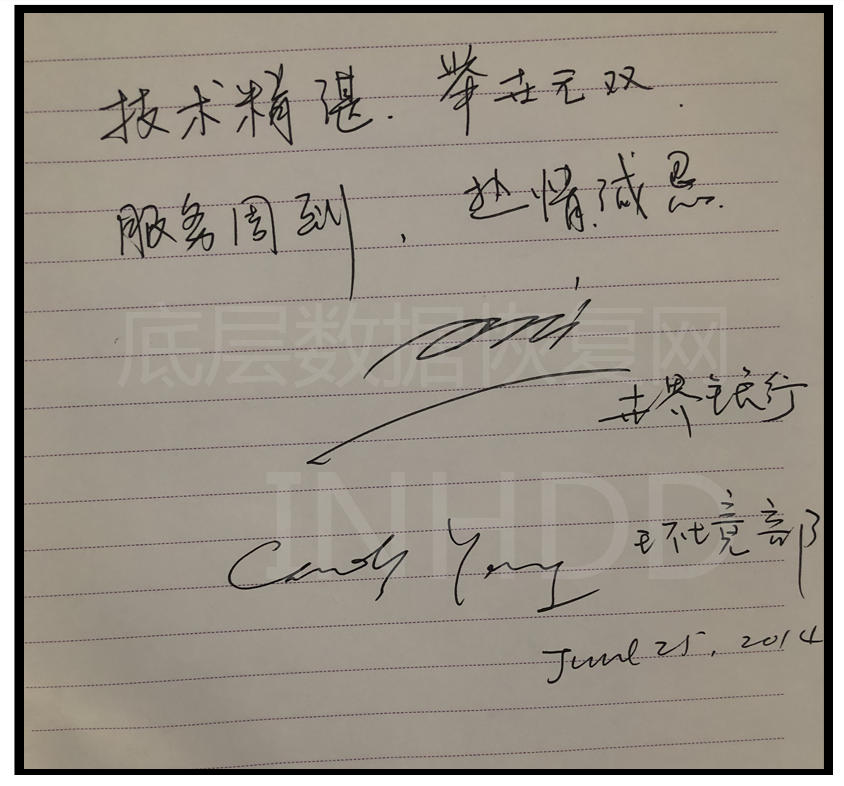 技术精湛.举世无双.
服务周到,热情诚恳.
底层数据恢复网
世界银行
INHDD
环境部
June 25, 2014